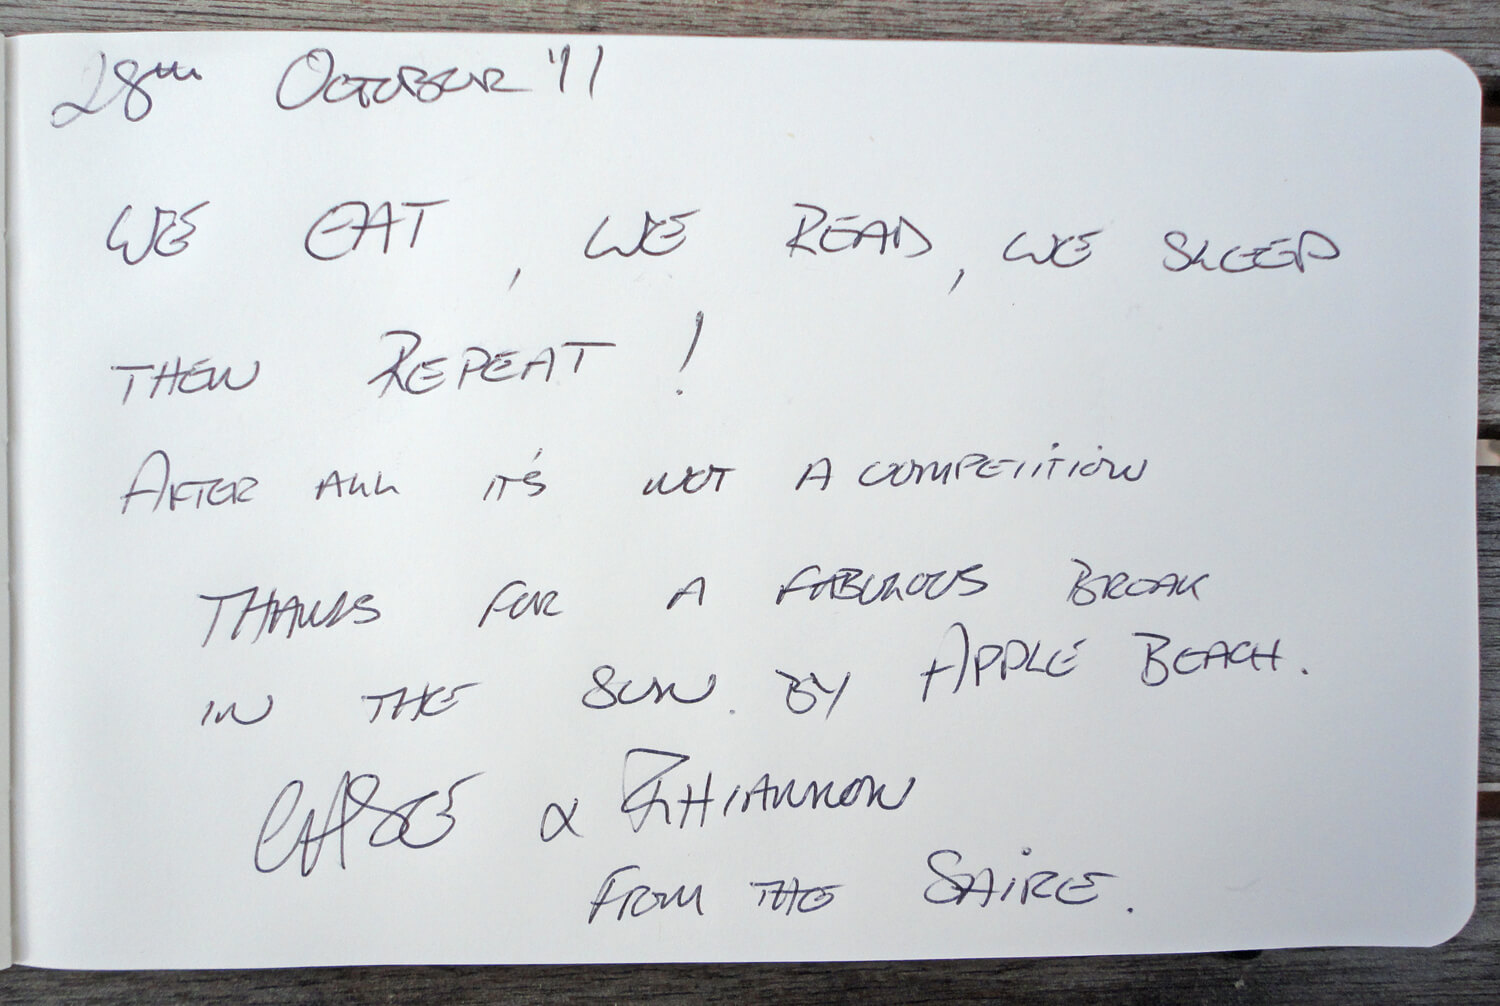 28th October '11
WE EAT, WE READ, WE SLEEP
THEN REPEAT!
AFTER ALL IT'S NOT A COMPETITION
THANKS FOR A FABULOUS BREAK
IN THE SUN. BY APPLE BEACH.
& RHIANNON
FROM THE SHIRE.